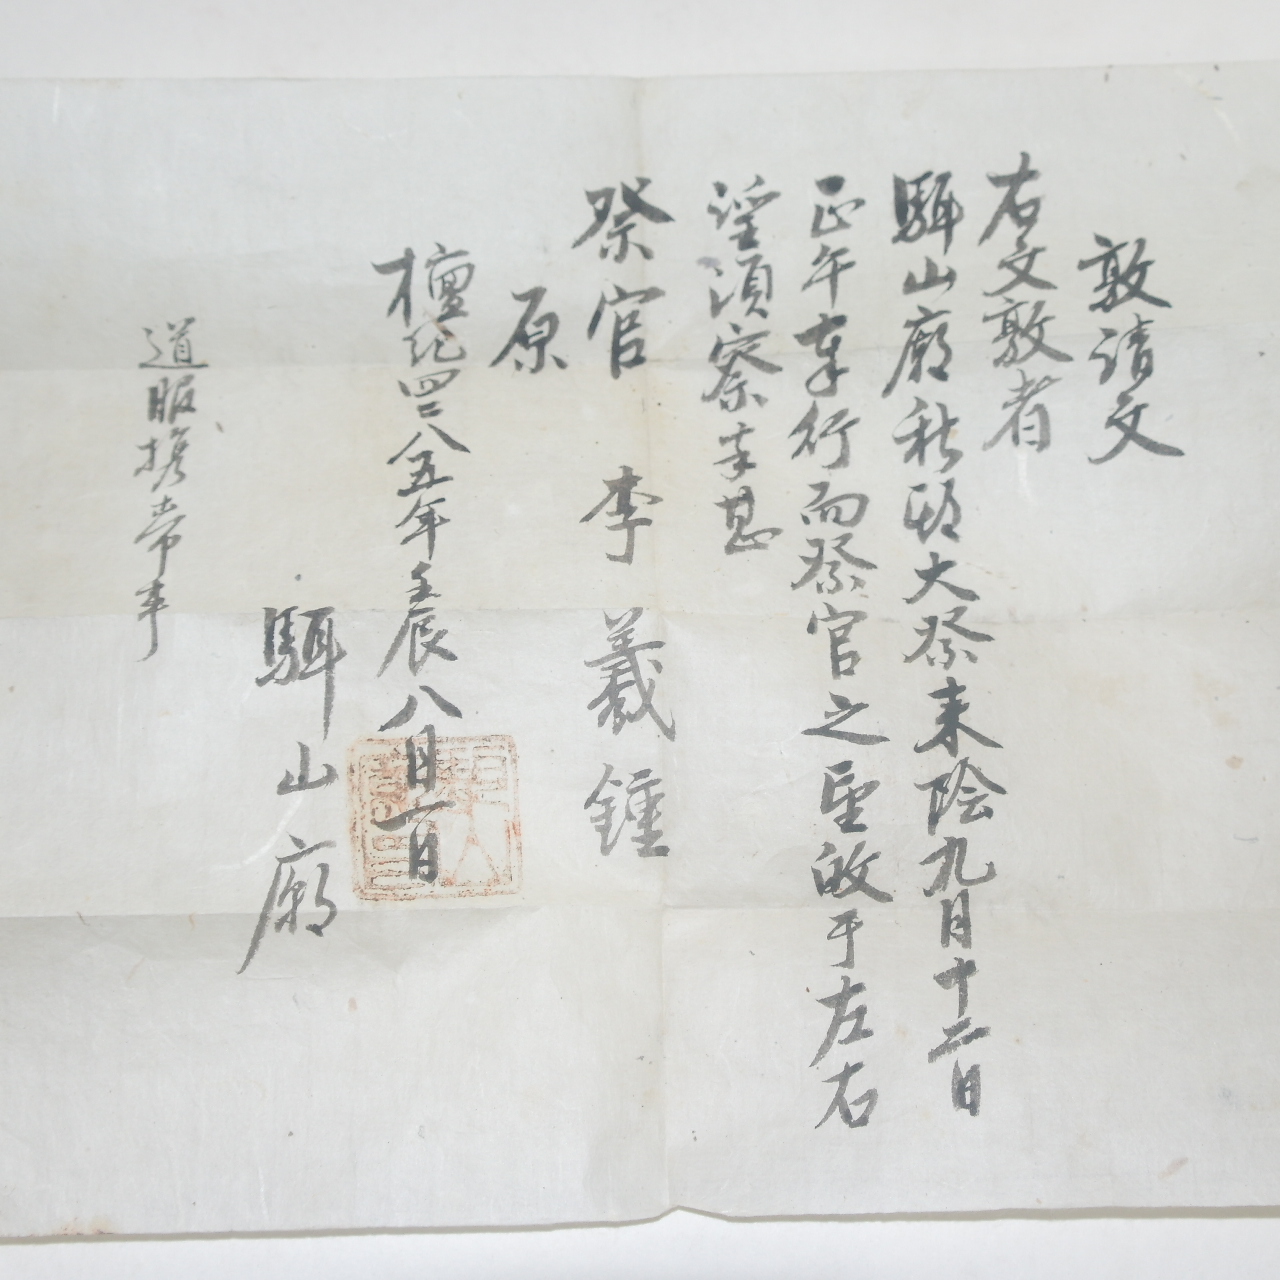 敦請文
右文敦者
駬山廟秋享大祭来陰九月十二日
正午奉行而祭官之望敀于左右
須察幸甚
祭官 李羲鍾
原
檀紀四二八五年壬辰八月一日
駬山廟
道服携帶事